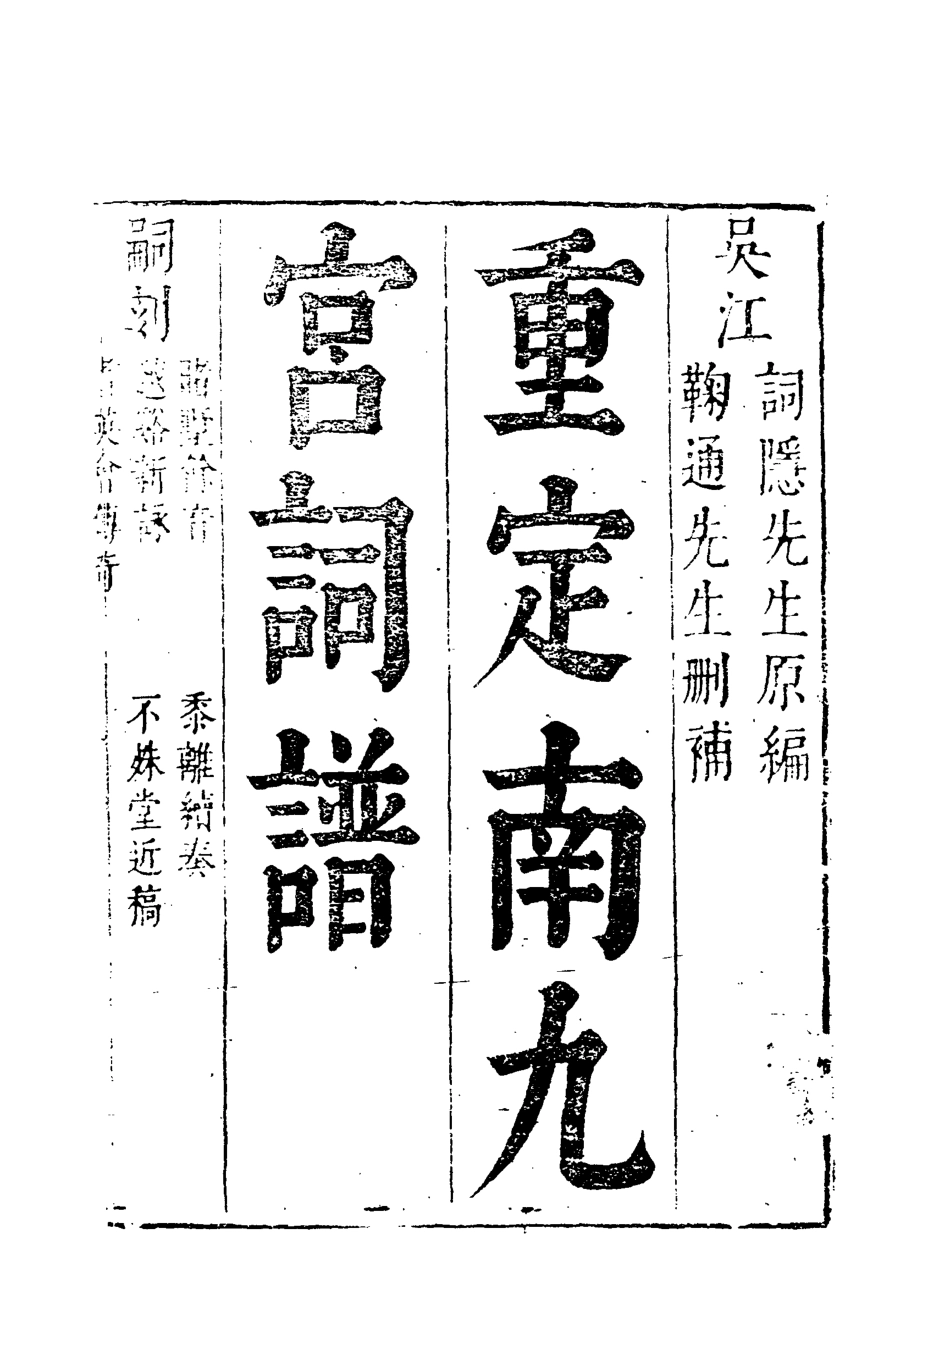 吳江
詞隱先生原編
鞠通先生刪補
重定南九
宮詞譜
嗣刻
賭墅餘音
黍離續奏
越谿新詠
不殊堂近稿
耆英會傳奇